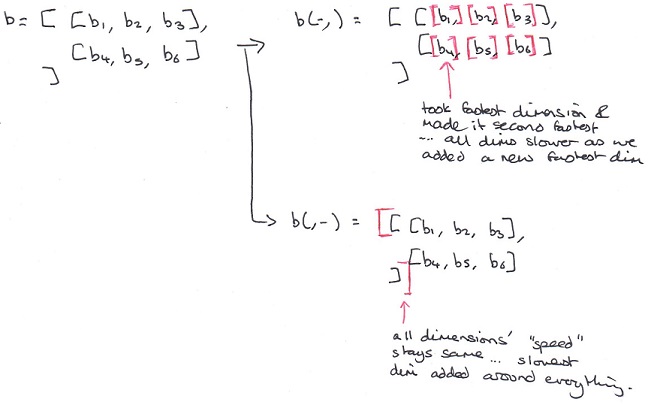 b = [ [b₁, b₂, b₃],
[b₄, b₅, b₆]
]
b(-,) = [ [[b₁,] [b₂,] [b₃]],
[[b₄], [b₅], [b₆]]
]
took fastest dimension &
made it second fastest
... all dims slower as we
added a new fastest dim
b(,-) = [[ [b₁, b₂, b₃],
[b₄, b₅, b₆]
]]
all dimensions' "speed"
stays same ... slowest
dim added around everything.